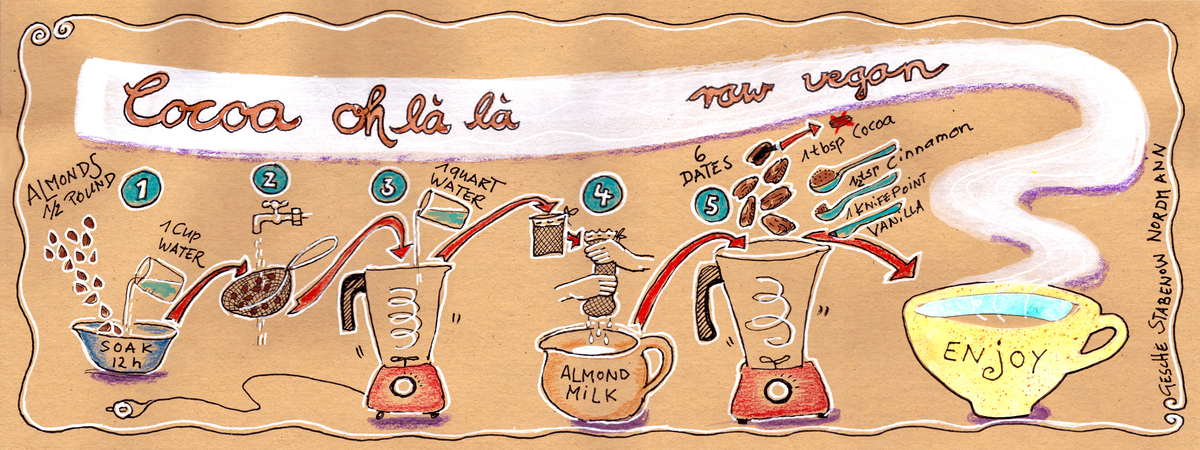 Cocoa oh là là
raw vegan
ALMONDS
1/2 POUND
1
1 CUP
WATER
SOAK
12 h
2
3
1 QUART
WATER
4
ALMOND
MiLK
6
DATES
5
1 tbsp Cocoa
1/2 tsp Cinnamon
1 KNiFEPOiNT
VANiLLA
ENjOY
GESCHE STABENOW NORDMANN